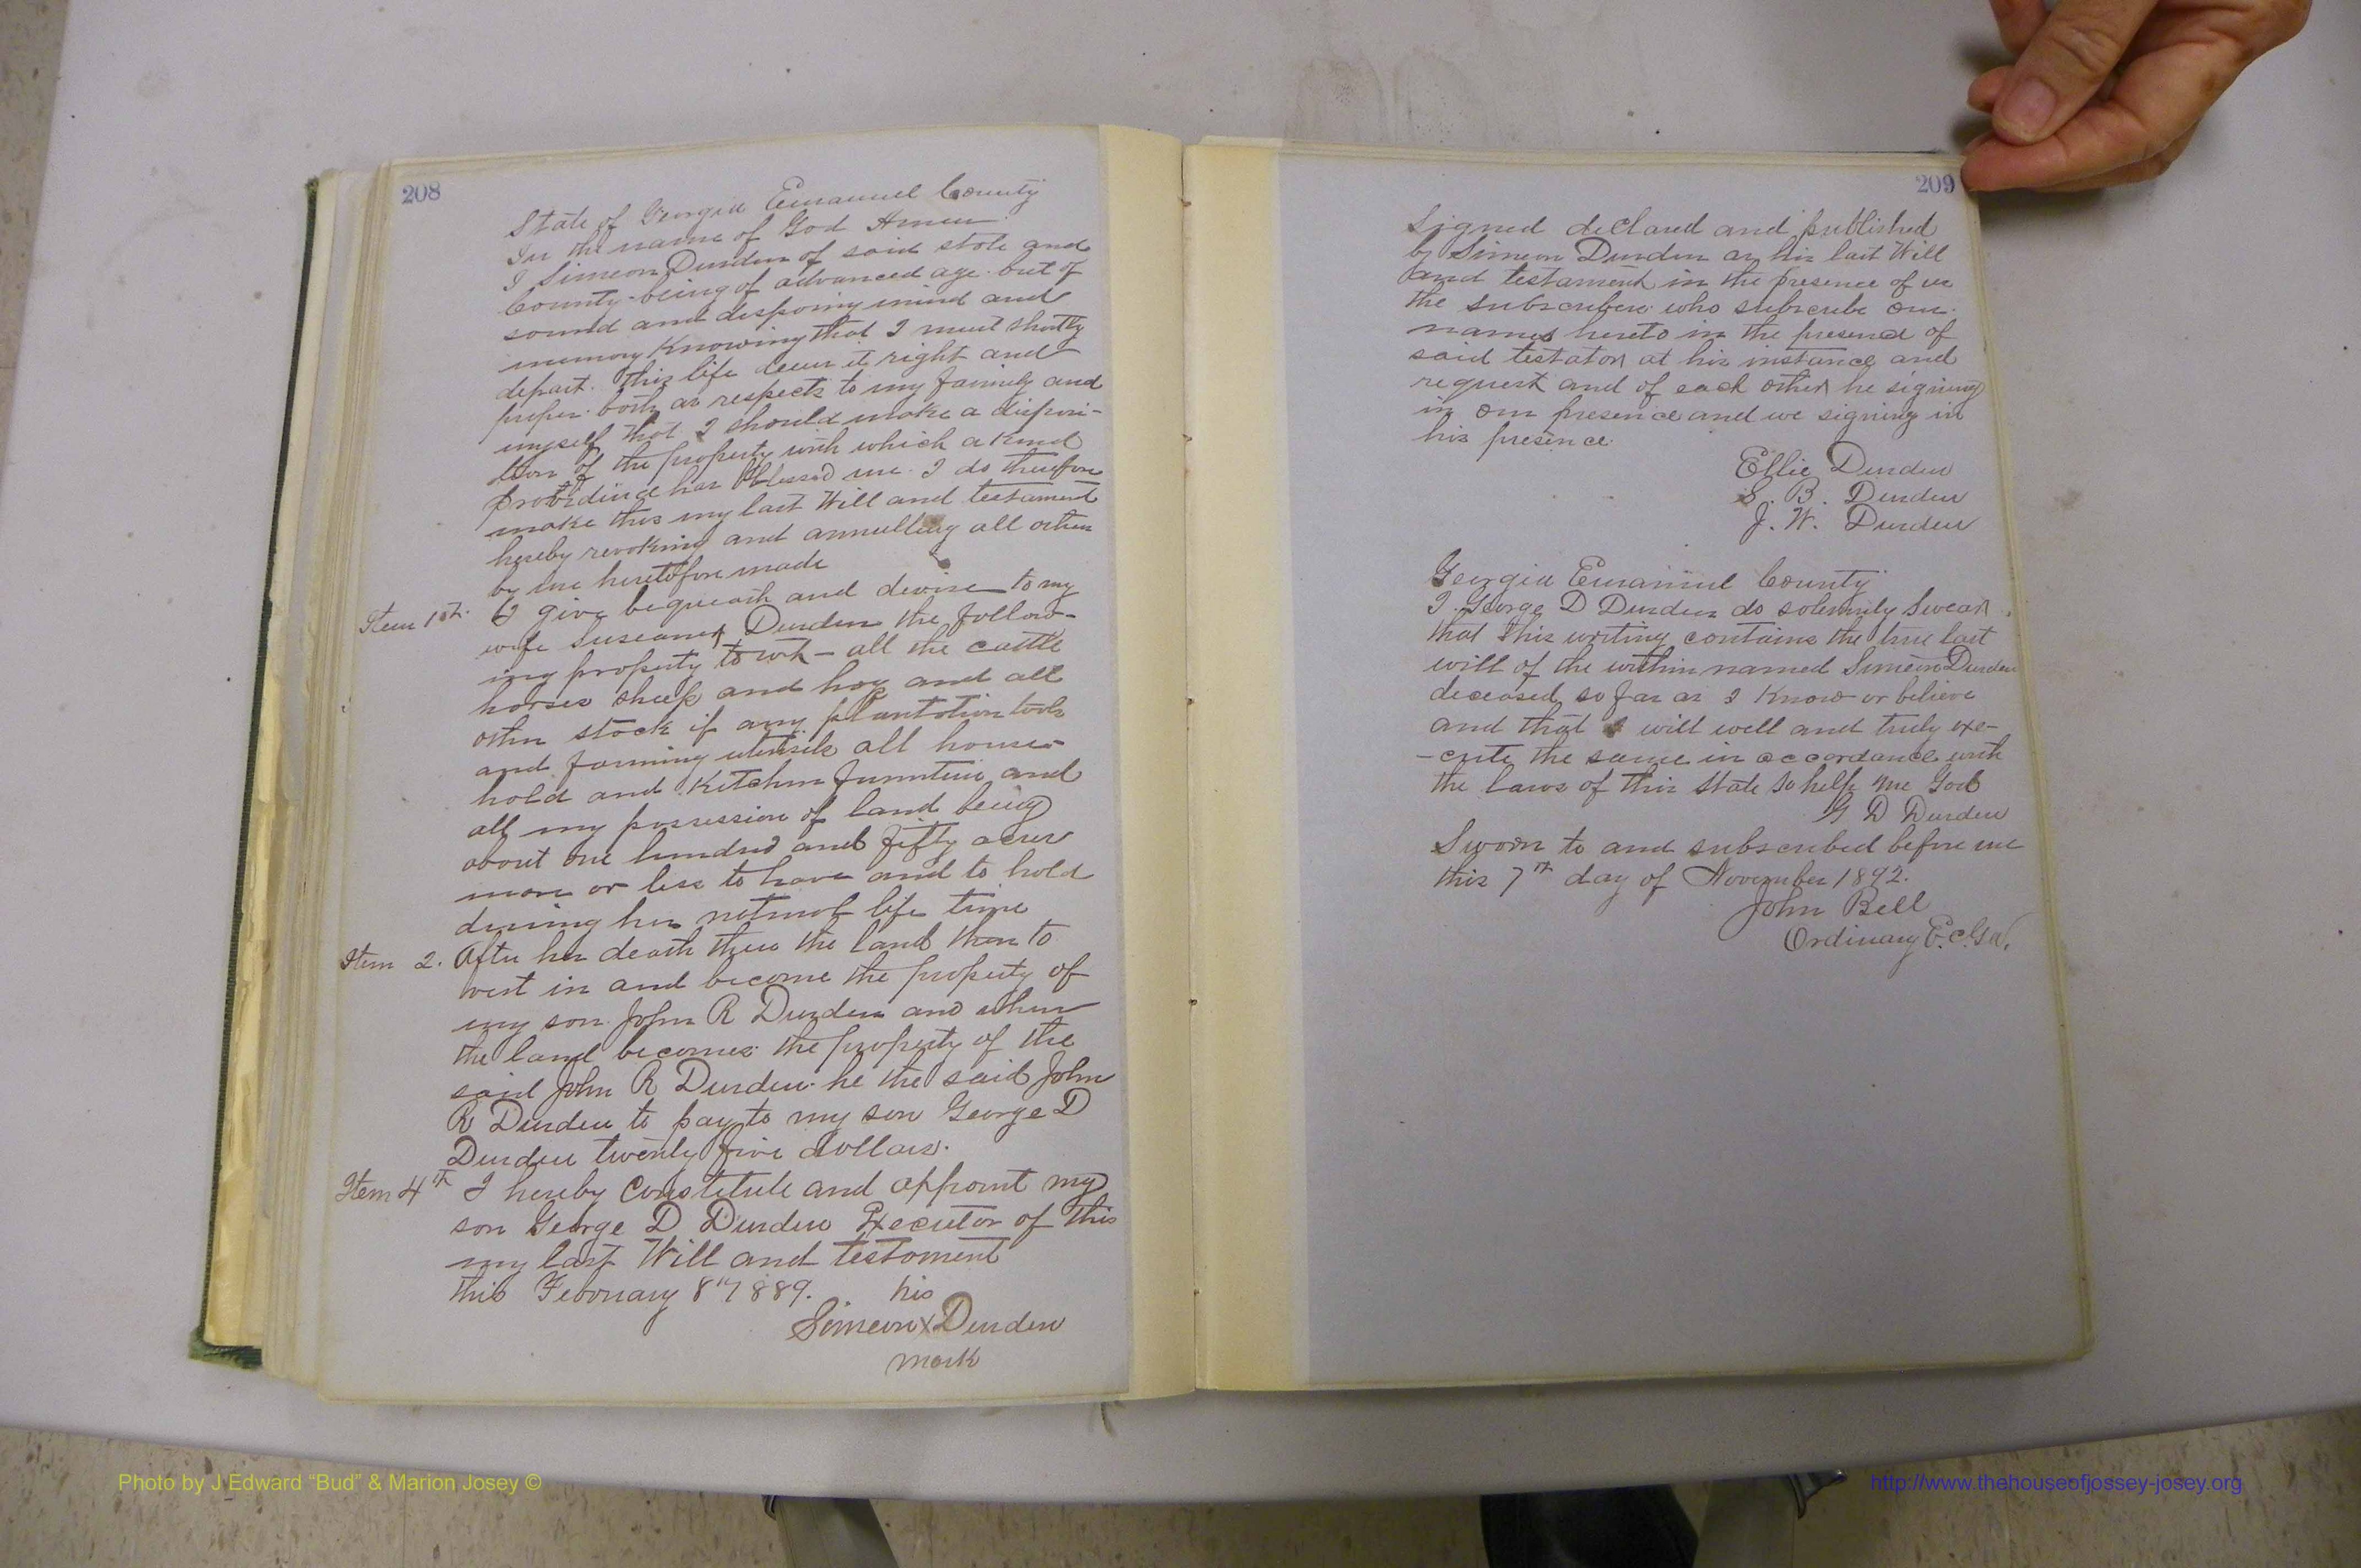 208
State of Georgia Emanuel County
In the name of God Amen.
I Simeon Durden of said state and
County being of advanced age but of
sound and disposing mind and
memory Knowing that I must shortly
depart this life deem it right and
proper both as respects to my family and
myself that I should make a disposi-
tion of the property with which a kind
providence has blessed me. I do therefore
make this my last Will and testament
hereby revoking and annulling all others
by me heretofore made
Item 1st. I give bequeath and devise to my
wife Durden the follow-
ing property to wit - all the cattle
horses sheep and hog and all
other stock if any plantation tools
and farming utensils all house-
hold and Kitchen furniture and
all my possession of land being
about one hundred and fifty acres
more or less to have and to hold
during her natural life time
Item 2. After her death then the land then to
vest in and become the property of
my son John R Durden and when
the land becomes the property of the
said John R Durden he the said John
R Durden to pay to my son George D
Durden twenty five dollars.
Item 4th I hereby constitute and appoint my
son George D Durden Executor of this
my last Will and testament
this Febouary 8th 1889. his
Simeon X Durden
mark
209
Signed declared and published
by Simeon Durden as his last Will
and testament in the presence of us
the subscribers who subscribe our
names hereto in the presence of
said testator at his instance and
request and of each other he signing
in our presence and we signing in
his presence.
Ellie Durden
S. B. Durden
J. W. Durden
Georgia Emanuel County
I George D Durden do solemnly Swear
that this writing contains the true last
will of the within named Simeon Durden
deceased so far as I Know or believe
and that I will well and truly exe-
-cute the same in accordance with
the laws of this State so help me God
G D Durden
Sworn to and subscribed before me
this 7th day of November 1892.
John Bell
Ordinary E.C. Ga.
Photo by J Edward “Bud” & Marion Josey ©
http://www.thehouseofjossey-josey.org